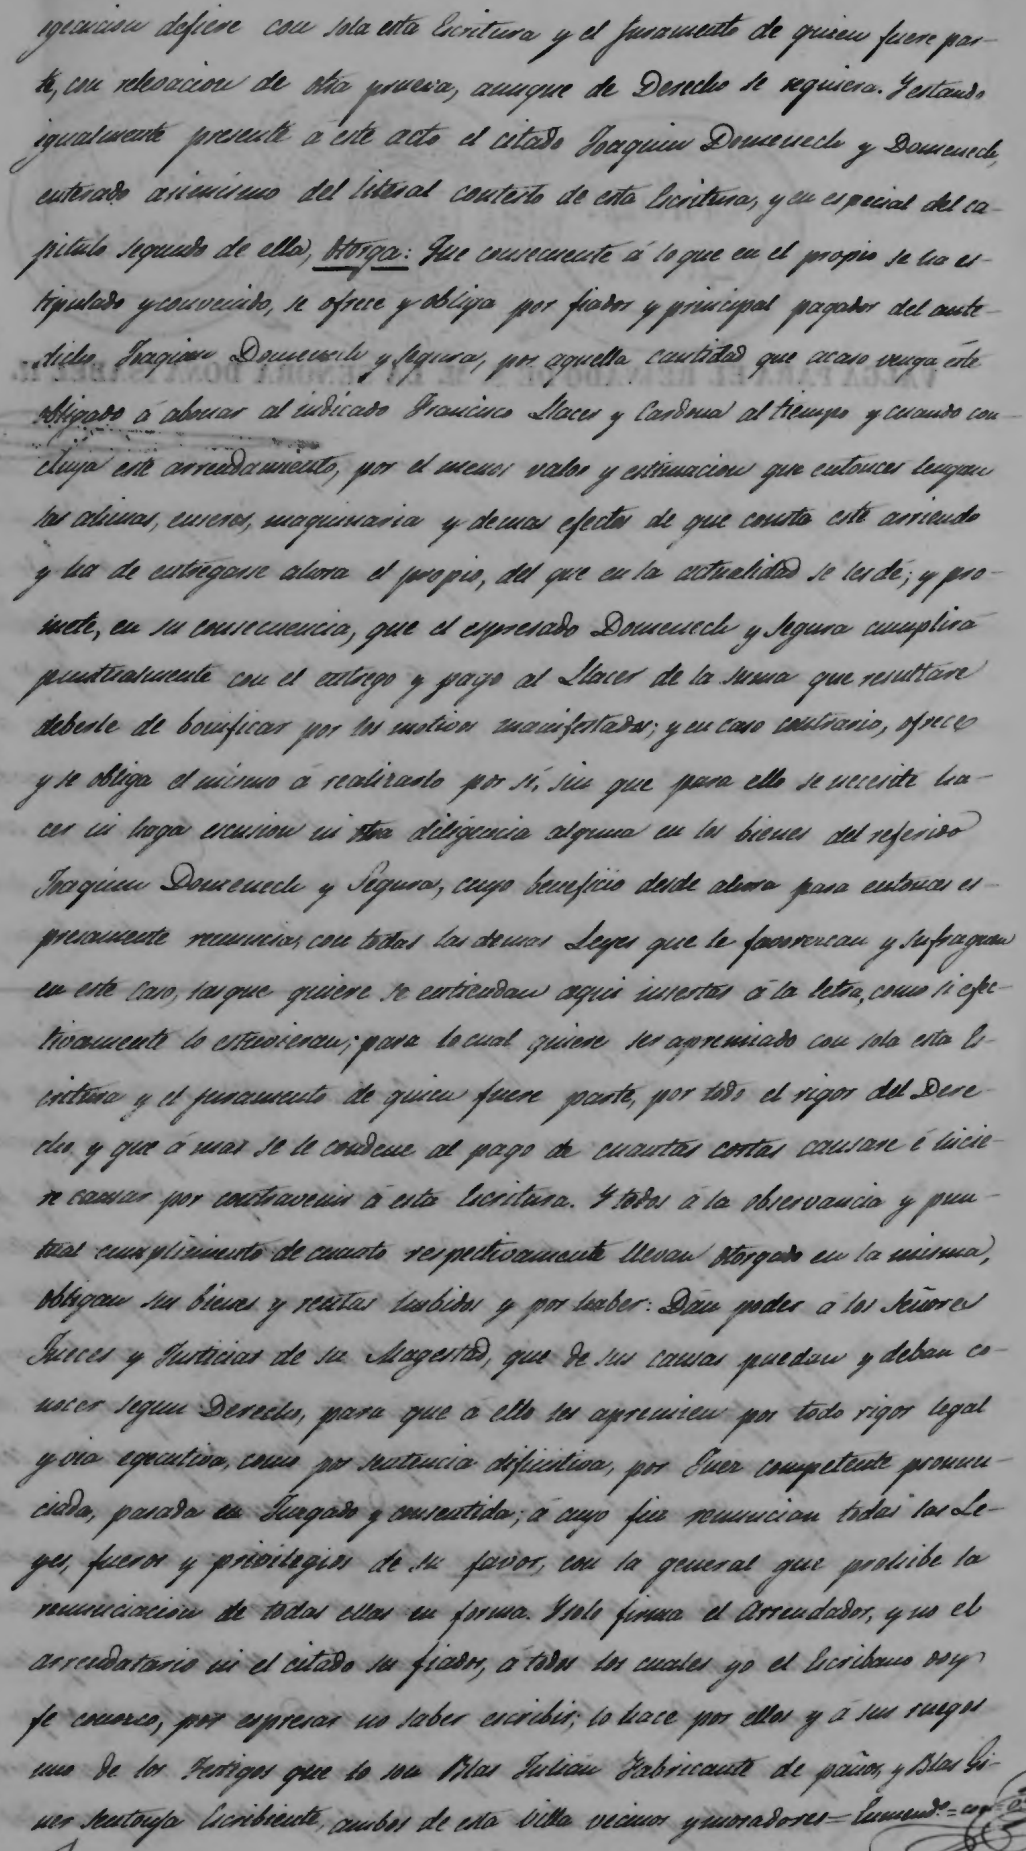 egecucion defiere con sola esta Escritura y el juramento de quien fuere par-
te, con relevacion de otra prueva, aunque de Derecho se requiera. Y estando
igualmente presente á este acto el citado Joaquin Domenech y Domenech,
enterado asimismo del literal contesto de esta Escritura, y en especial del ca-
pitulo segundo de ella, Otorga: Que consecuente á lo que en el propio se ha es-
tipulado y convenido, se ofrece y obliga por fiador y principal pagador del ante-
dicho Joaquin Domenech y Segura, por aquella cantidad que acaso venga éste
obligado á abonar al indicado Francisco Llacer y Cardona al tiempo y cuando con-
cluya este arrendamiento, por el menos valor y estimacion que entonces tengan
las alinas, enseres, maquinaria y demas efectos de que consta este arriendo
y ha de entregarse ahora el propio, del que en la actualidad se les dé; y pro-
mete, en su consecuencia, que el espresado Domenech y Segura cumplirá
puntualmente con el entrego y pago al Llacer de la suma que resultare
deberle de bonificar por los motivos manifestados; y en caso contrario, ofrece
y se obliga el mismo á realizarlo por sí, sin que para ello se necesite ha-
cer ni haga escusion ni otra diligencia alguna en los bienes del referido
Joaquin Domenech y Segura, cuyo beneficio desde ahora para entonces es-
presamente renuncia, con todas las demas Leyes que le favorezcan y sufraguen
en este caso, las que quiere se entiendan aqui insertas á la letra, como si efec-
tivamente lo estuvieran; para lo cual quiere ser apremiado con sola esta Es-
critura y el juramento de quien fuere parte, por todo el rigor del Dere-
cho y que á mas se le condene al pago de cuantas costas causare é hicie-
re causar por contravenir á esta Escritura. Y todos á la observancia y pun-
tual cumplimiento de cuanto respectivamente llevan otorgado en la misma,
obligan sus bienes y rentas habidos y por haber: Dan poder á los Señores
Jueces y Justicias de su Magestad, que de sus causas puedan y deban co-
nocer segun Derecho, para que á ello les apremien por todo rigor legal
y via egecutiva, como por sentencia difinitiva, por Juez competente pronun-
ciada, pasada en Juzgado y consentida; á cuyo fin renuncian todas las Le-
yes, fueros y privilegios de su favor, con la general que prohibe la
renunciacion de todas ellas en forma. Y solo firma el Arrendador, y no el
arrendatario ni el citado su fiador, á todos los cuales yo el Escribano doy
fe conozco, por espresar no saber escribir; lo hace por ellos y á sus ruegos
uno de los Testigos que lo son Blas Julián Fabricante de paños, y Blas Gi-
ner Escribiente, ambos de esta Villa vecinos y moradores = Enmend.º =